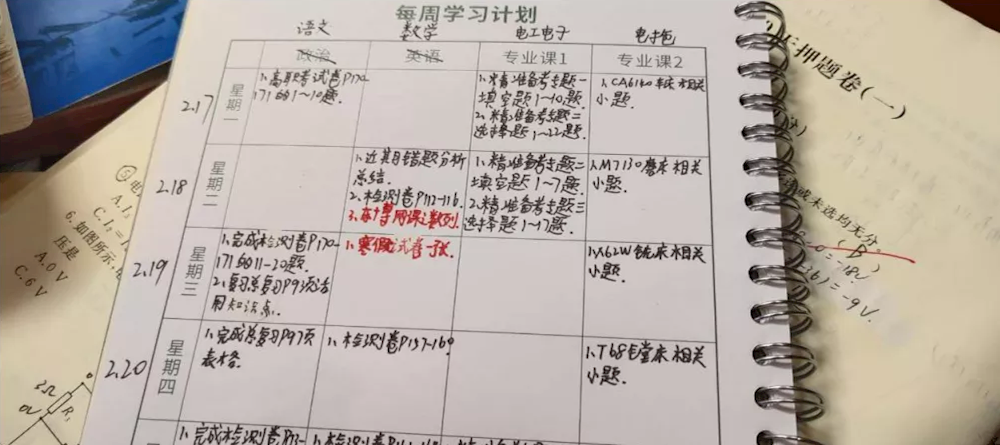 每周学习计划
语文 数学 电工电子 电拖
政治 英语 专业课1 专业课2
2.17
星期一
1、高职考试卷P170-
171的1~10题.
1、精准备考专题一
填空题1~10题.
2、精准备考专题二
选择题1~22题.
1、CA6140车床相关
小题.
2.18
星期二
1、近其月错题分析
总结.
2、检测卷P112-116.
3、网课:数列.
1、精准备考专题二
填空题1~7题.
2、精准备考专题三
选择题1~17题.
1、M7130磨床相关
小题.
2.19
星期三
1、完成检测卷P170-
171的11-20题.
2、复习总复习P93
用知识点.
1、寒假试卷一张.
1、X62W铣床相关
小题.
2.20
星期四
1、完成总复习P97页
表格.
1、检测卷P157-160
1、T68镗床相关
小题.
1、完成检测卷P173-
1、检测卷
押题卷(一)
成未选均无分
B)
-18V
(-36)=-9V.
⑤电
A.I
C.I
6.如图所示,
压是
A.0 V
C.6 V
3Ω
R₁